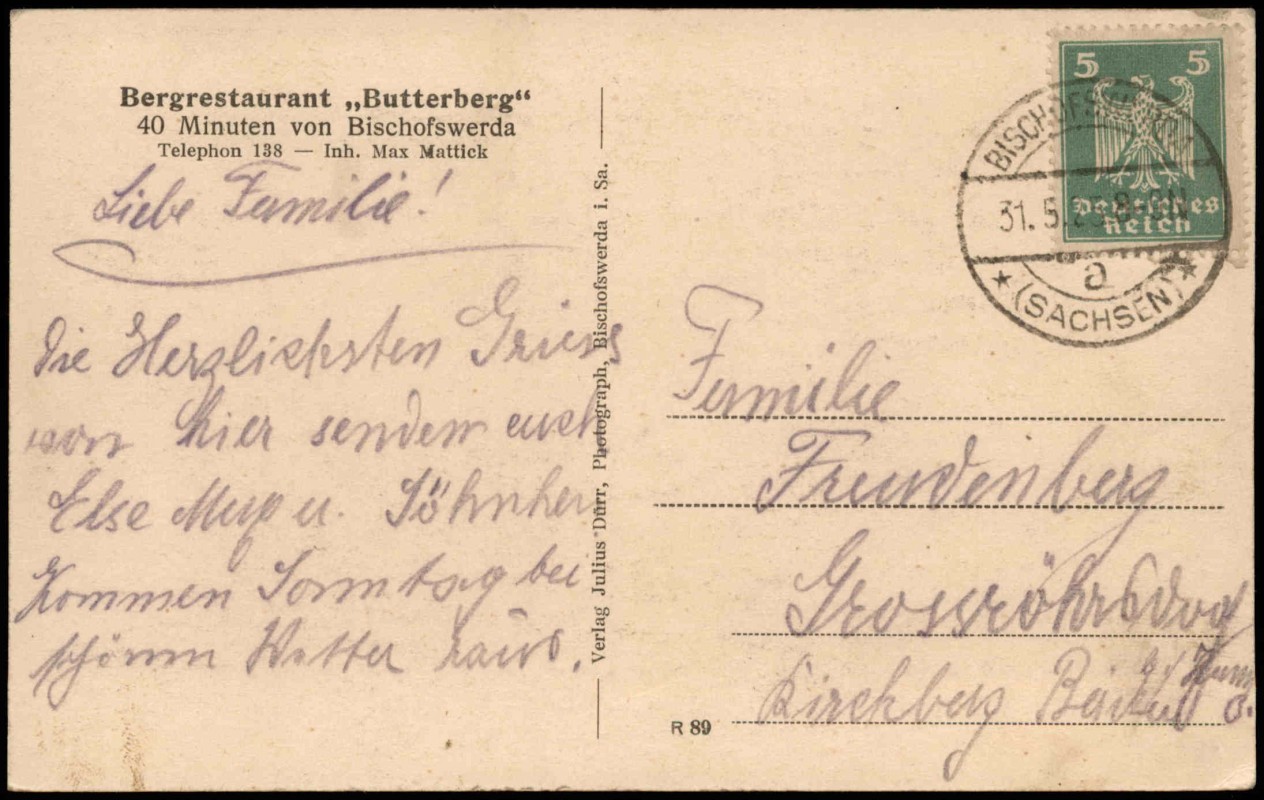 Bergrestaurant „Butterberg“
40 Minuten von Bischofswerda
Telephon 138 — Inh. Max Mattick
Liebe Familie!
die Herzlichsten Grüss
von hier senden euch
Else u. Söhnchen
Kommen Sonntag bei
schönen Wetter raus.
Verlag Julius Dürr, Photograph, Bischofswerda i. Sa.
5 5
Deutsches
Reich
BISCHOFSWERDA
31. 5. 8-9N
a
(SACHSEN)
Familie
Freudenberg
Grossröhrsdorf
Kirchberg
R 89